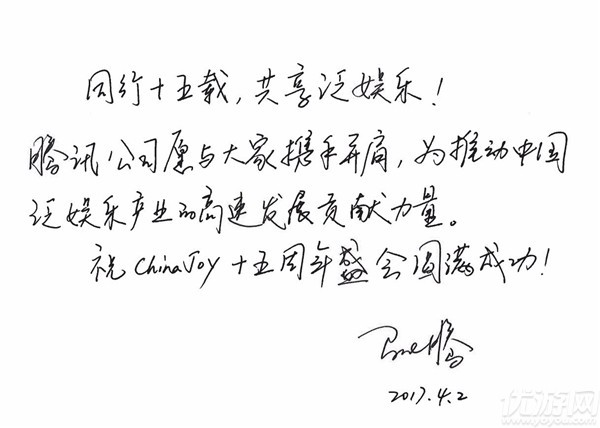 同行十五载，共享泛娱乐！
腾讯公司愿与大家携手并肩，为推动中国
泛娱乐产业的高速发展贡献力量。
祝ChinaJoy十五周年盛会圆满成功！
2017.4.2
优游网
www.yoyou.com